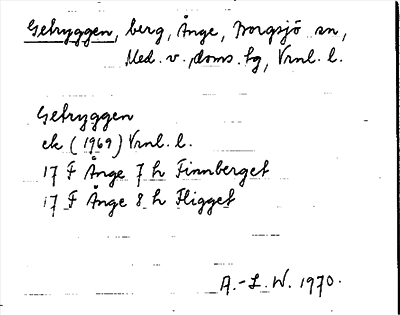 Getryggen, berg, Ånge, Borgsjö sn,
Med. v. doms. tg, Vrnl. l.
Getryggen
ek (1969) Vrnl. l.
17 F Ånge 7 h Finnberget
17 F Ånge 8 h Fligget
A.-L. W. 1970.